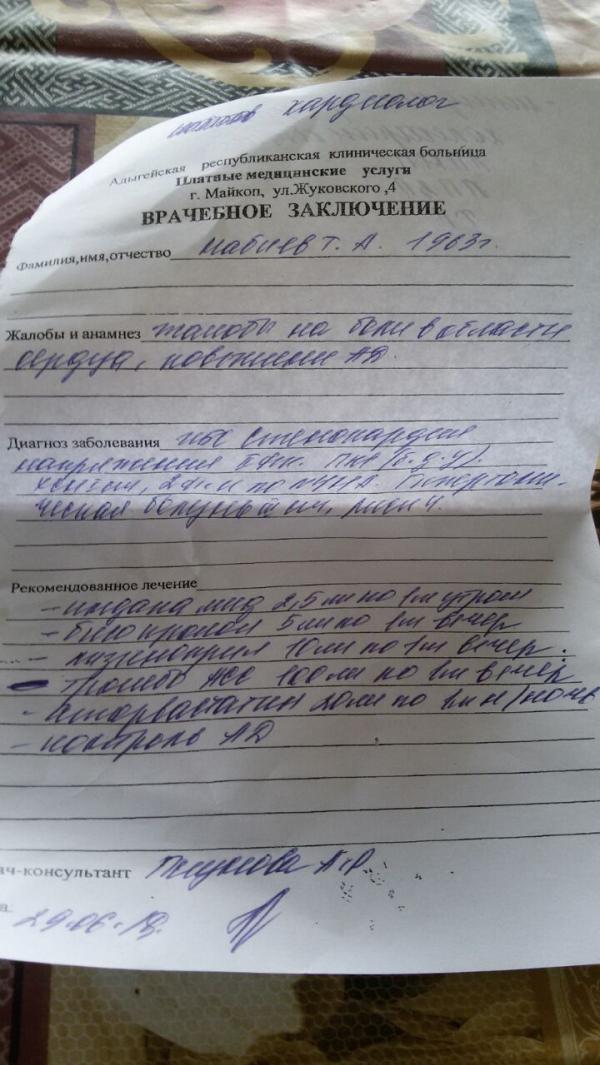 кардиолог
Адыгейская республиканская клиническая больница
Платные медицинские услуги
г. Майкоп, ул.Жуковского ,4
ВРАЧЕБНОЕ ЗАКЛЮЧЕНИЕ
Фамилия,имя,отчество Набиев Т. А. 1963г.
Жалобы и анамнез жалобы на боли в области
сердца, повышение АД.
Диагноз заболевания ИБС Стенокардия
напряжения
Гипертони-
ческая болезнь риск 4.
Рекомендованное лечение
- индапамид 2,5 мг по 1т утром
- бисопролол 5 мг по 1т вечер
- лизиноприл 10мг по 1т вечер.
- Тромбо АСС 100мг по 1т вечер
- аторвастатин 20мг по 1т н/ночь
- контроль АД
ач-консультант А.Р.
а. 29.06.19.